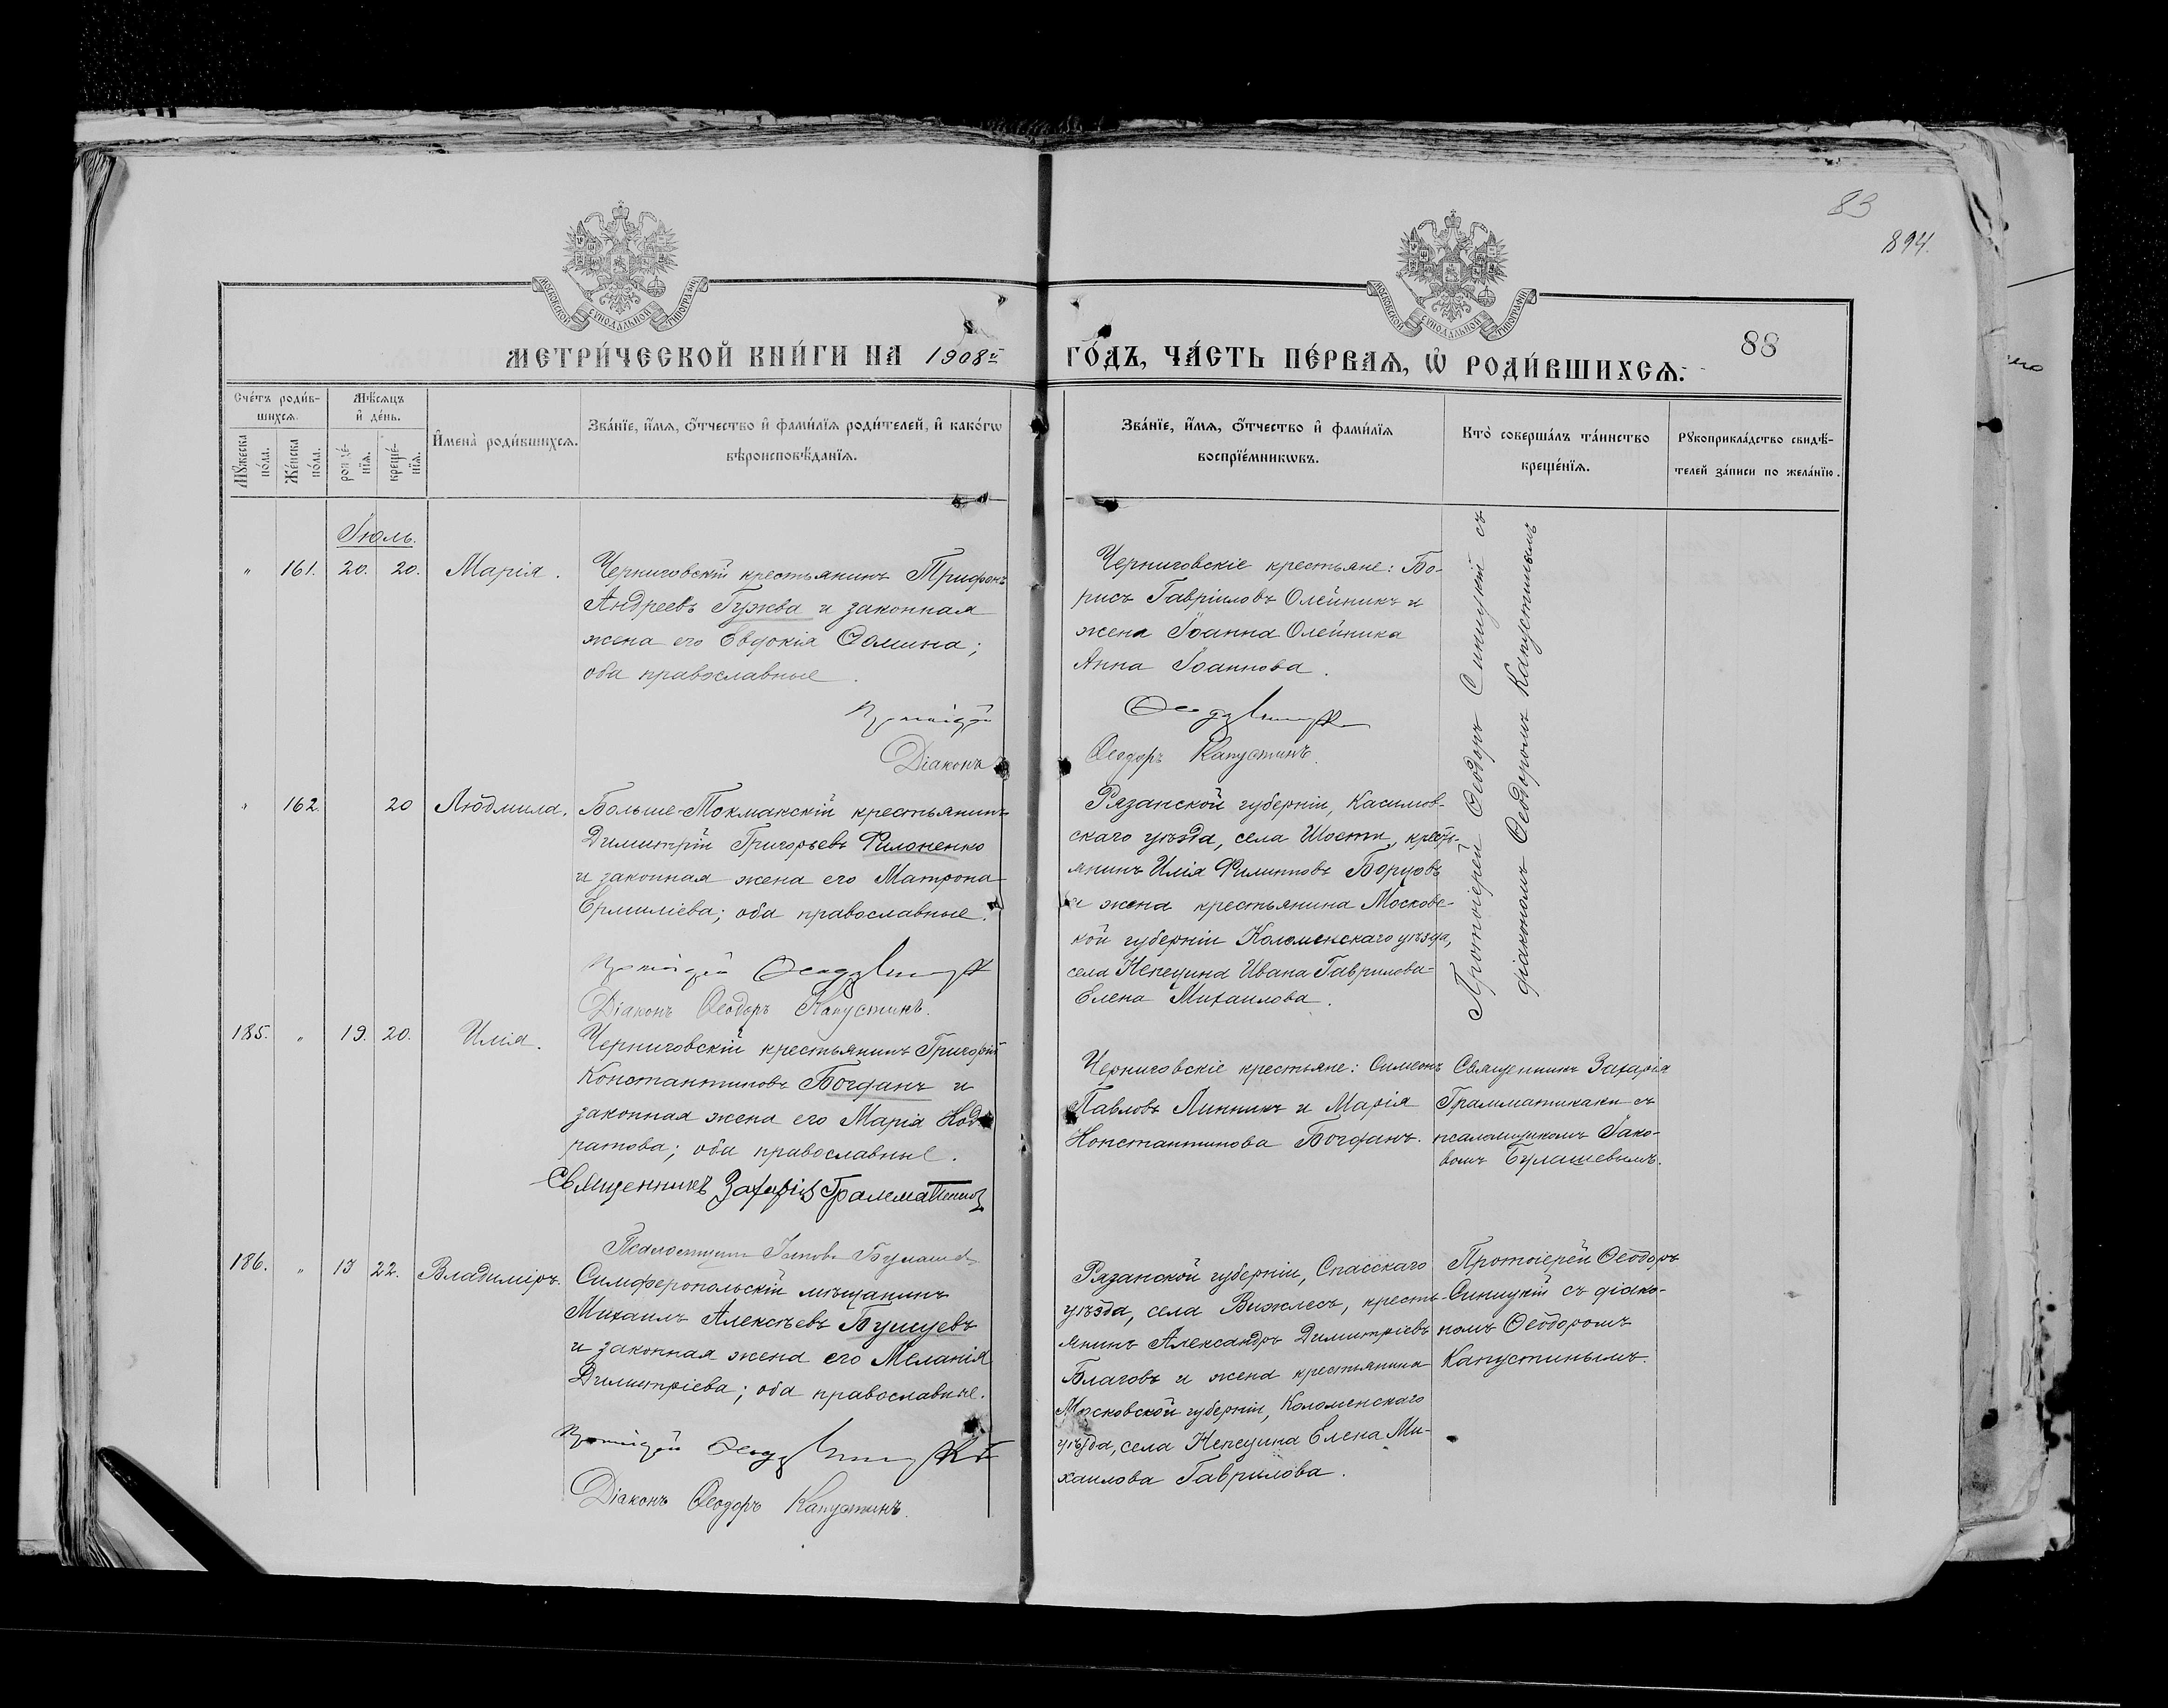 83
894.
МОСКОВСКОЙ СѴНОДАЛЬНОЙ ТИПОГРАФІИ
МОСКОВСКОЙ СѴНОДАЛЬНОЙ ТИПОГРАФІИ
МЕТРИ́ЧЕСКОЙ КНИ́ГИ НА 1908й ГО́ДЪ, ЧА́СТЬ ПЕ́РВАѦ, Ѡ҆ РОДИ́ВШИХСѦ.
88
Сче́тъ роди́в-
шихсѧ.
Мѣ́сѧцъ
и҆ де́нь.
Мꙋ́жеска
по́ла.
Же́нска
по́ла.
рожде́-
нїѧ.
креще́-
нїѧ.
И҆мена̀ роди́вшихсѧ.
Зва́нїе, и҆́мѧ, ѻ҆́тчество и҆ фами́лїѧ роди́телей, и҆ како́гѡ
вѣроисповѣ́данїѧ.
Зва́нїе, и҆́мѧ, ѻ҆́тчество и҆ фами́лїѧ
воспрїе́мникѡвъ.
Кто̀ соверша́лъ та́инство
креще́нїѧ.
Рꙋкоприкла́дство свидѣ́-
телей за́писи по жела́нїю.
Іюль.
" 161. 20. 20. Марія.
Черниговскій крестьянинъ Трифонъ
Андреевъ Гужва и законная
жена его Евдокія Ѳомина;
оба православные.
Протоіерей
Діаконъ
Черниговскіе крестьяне: Бо-
рисъ Гавріиловъ Олейникъ и
жена Іоанна Олейника
Анна Іоаннова.
Ѳеодоръ Синицкій
Ѳеодоръ Капустинъ.
Протоіерей Ѳеодоръ Синицкій съ
діакономъ Ѳеодоромъ Капустинымъ
" 162. 20 Людмила.
Больше-Токмакскій крестьянинъ
Димитрій Григорьевъ Филоненко
и законная жена его Матрона
Ермиліева; оба православные.
Протоіерей Ѳеодоръ Синицкій
Діаконъ Ѳеодоръ Капустинъ.
Рязанской губерніи, Касимов-
скаго уѣзда, села Шости, кресть-
янинъ Илія Филипповъ Борцовъ
и жена крестьянина Москов-
кой губерніи Коломенскаго уѣзда,
села Непецина Ивана Гаврилова-
Елена Михаилова.
185. " 19. 20. Илія.
Черниговскій крестьянинъ Григорій
Константиновъ Богданъ и
законная жена его Марія Код-
ратова; оба православные.
Священникъ Захарія Грамматикаки
Псаломщикъ Іаковъ Булашев
Черниговскіе крестьяне: Симеонъ
Павловъ Линникъ и Марія
Константинова Богданъ.
Священникъ Захарія
Грамматикаки съ
псаломщикомъ Іако-
вомъ Булашевымъ.
186. " 13 22. Владиміръ.
Симферопольскій мѣщанинъ
Михаилъ Алексѣевъ Бушуевъ
и законная жена его Меланія
Димитріева; оба православные.
Протоіерей Ѳеодоръ Синицкій
Діаконъ Ѳеодоръ Капустинъ.
Рязанской губерніи, Спасскаго
уѣзда, села Вижлесъ, кресть-
янинъ Александръ Димитріевъ
Благовъ и жена крестьянина
Московской губерніи, Коломенскаго
уѣзда, села Непецина Елена Ми-
хаилова Гаврилова.
Протоіерей Ѳеодоръ
Синицкій съ діако-
номъ Ѳеодоромъ
Капустинымъ.